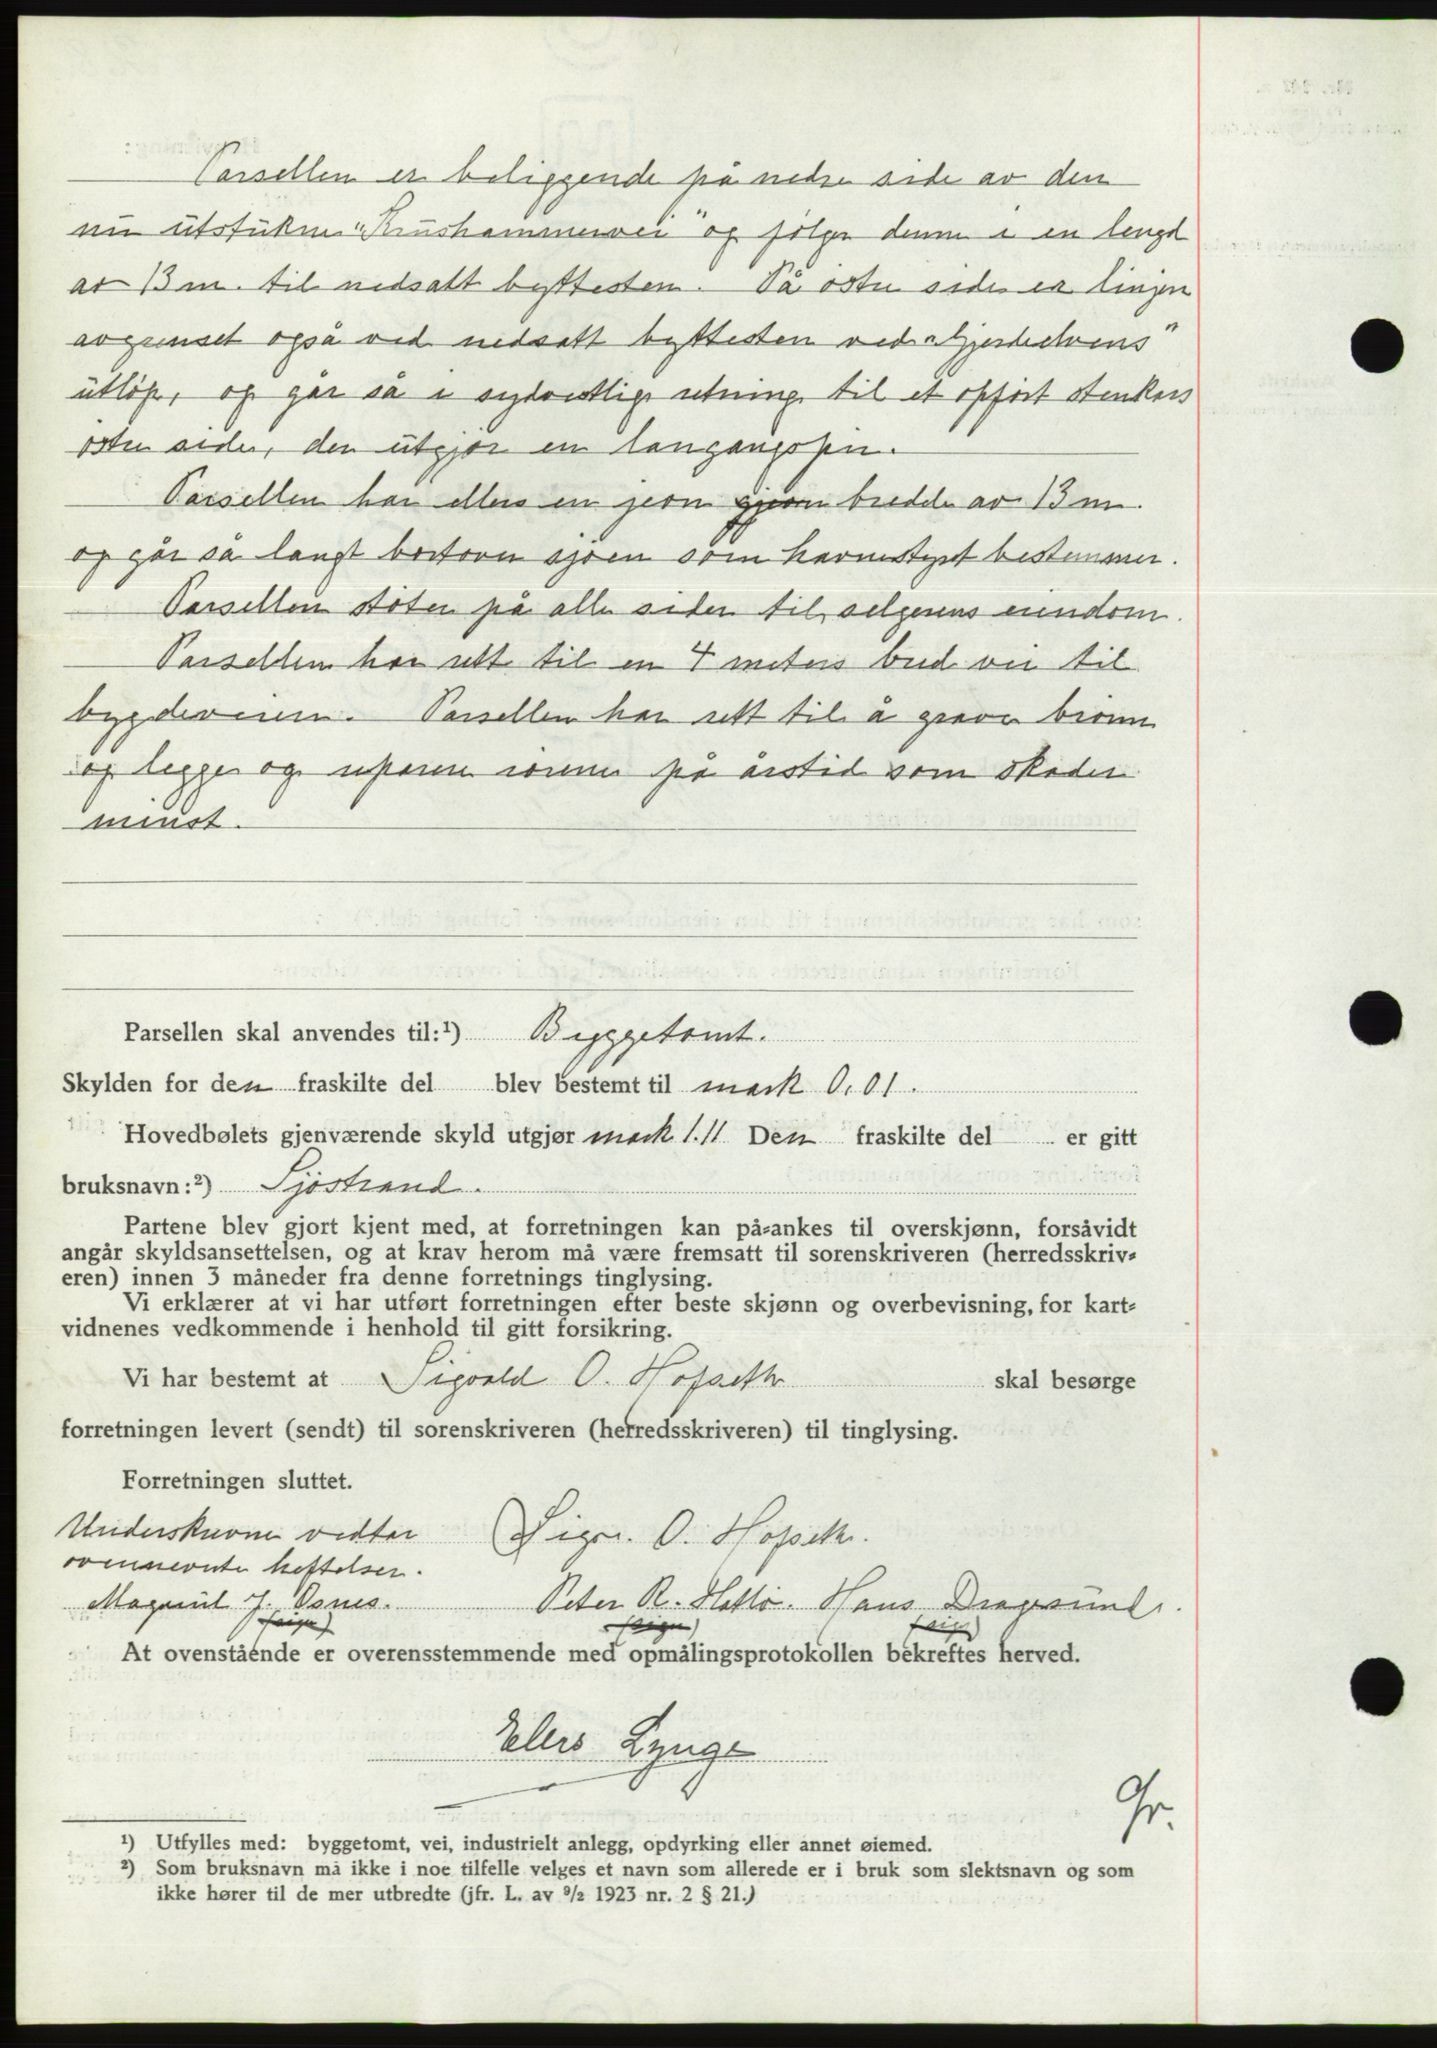 Parsellen er beliggende på nedre side av den
nu utstukne "Krushammervei" og følger denne i en lengd
av 13 m. til nedsatt byttesten. På østre side er linjen
avgrenset også ved nedsatt byttesten ved "Gjerdeelvens"
utløp, og går så i sydvestlig retning til et opført stenkars
østre side, der utgjør en langangspir.
Parsellen har ellers en jevn bredde av 13 m.
og går så langt bortover sjøen som havnestyret bestemmer.
Parsellen støter på alle sider til selgerens eiendom.
Parsellen har rett til en 4 meters bred vei til
bygdeveien. Parsellen har rett til å grave brønn
og legge og reparere rørene på årstid som skader
minst.
Parsellen skal anvendes til:¹) Byggetomt.
Skylden for den fraskilte del blev bestemt til mark 0,01.
Hovedbølets gjenværende skyld utgjør mark 1.11 Den fraskilte del er gitt
bruksnavn:²) Sjøstrand.
Partene blev gjort kjent med, at forretningen kan på-ankes til overskjønn, forsåvidt
angår skyldsansettelsen, og at krav herom må være fremsatt til sorenskriveren (herredsskriv-
eren) innen 3 måneder fra denne forretnings tinglysing.
Vi erklærer at vi har utført forretningen efter beste skjønn og overbevisning, for kart-
vidnenes vedkommende i henhold til gitt forsikring.
Vi har bestemt at Sigvald O. Hofseth skal besørge
forretningen levert (sendt) til sorenskriveren (herredsskriveren) til tinglysing.
Forretningen sluttet.
Underskrevne vedtar Sigv. O. Hofseth.
ovennevnte heftelser.
Magnhil J. Osnes. Peter R. Hatlø. Hans Dragesund.
(sign) (sign) (sign)
At ovenstående er overensstemmende med opmålingsprotokollen bekreftes herved.
Elers Lynge
Gr.
¹) Utfylles med: byggetomt, vei, industrielt anlegg, opdyrking eller annet øiemed.
²) Som bruksnavn må ikke i noe tilfelle velges et navn som allerede er i bruk som slektsnavn og som
ikke hører til de mer utbredte (jfr. L. av ⁹/₂ 1923 nr. 2 § 21.)